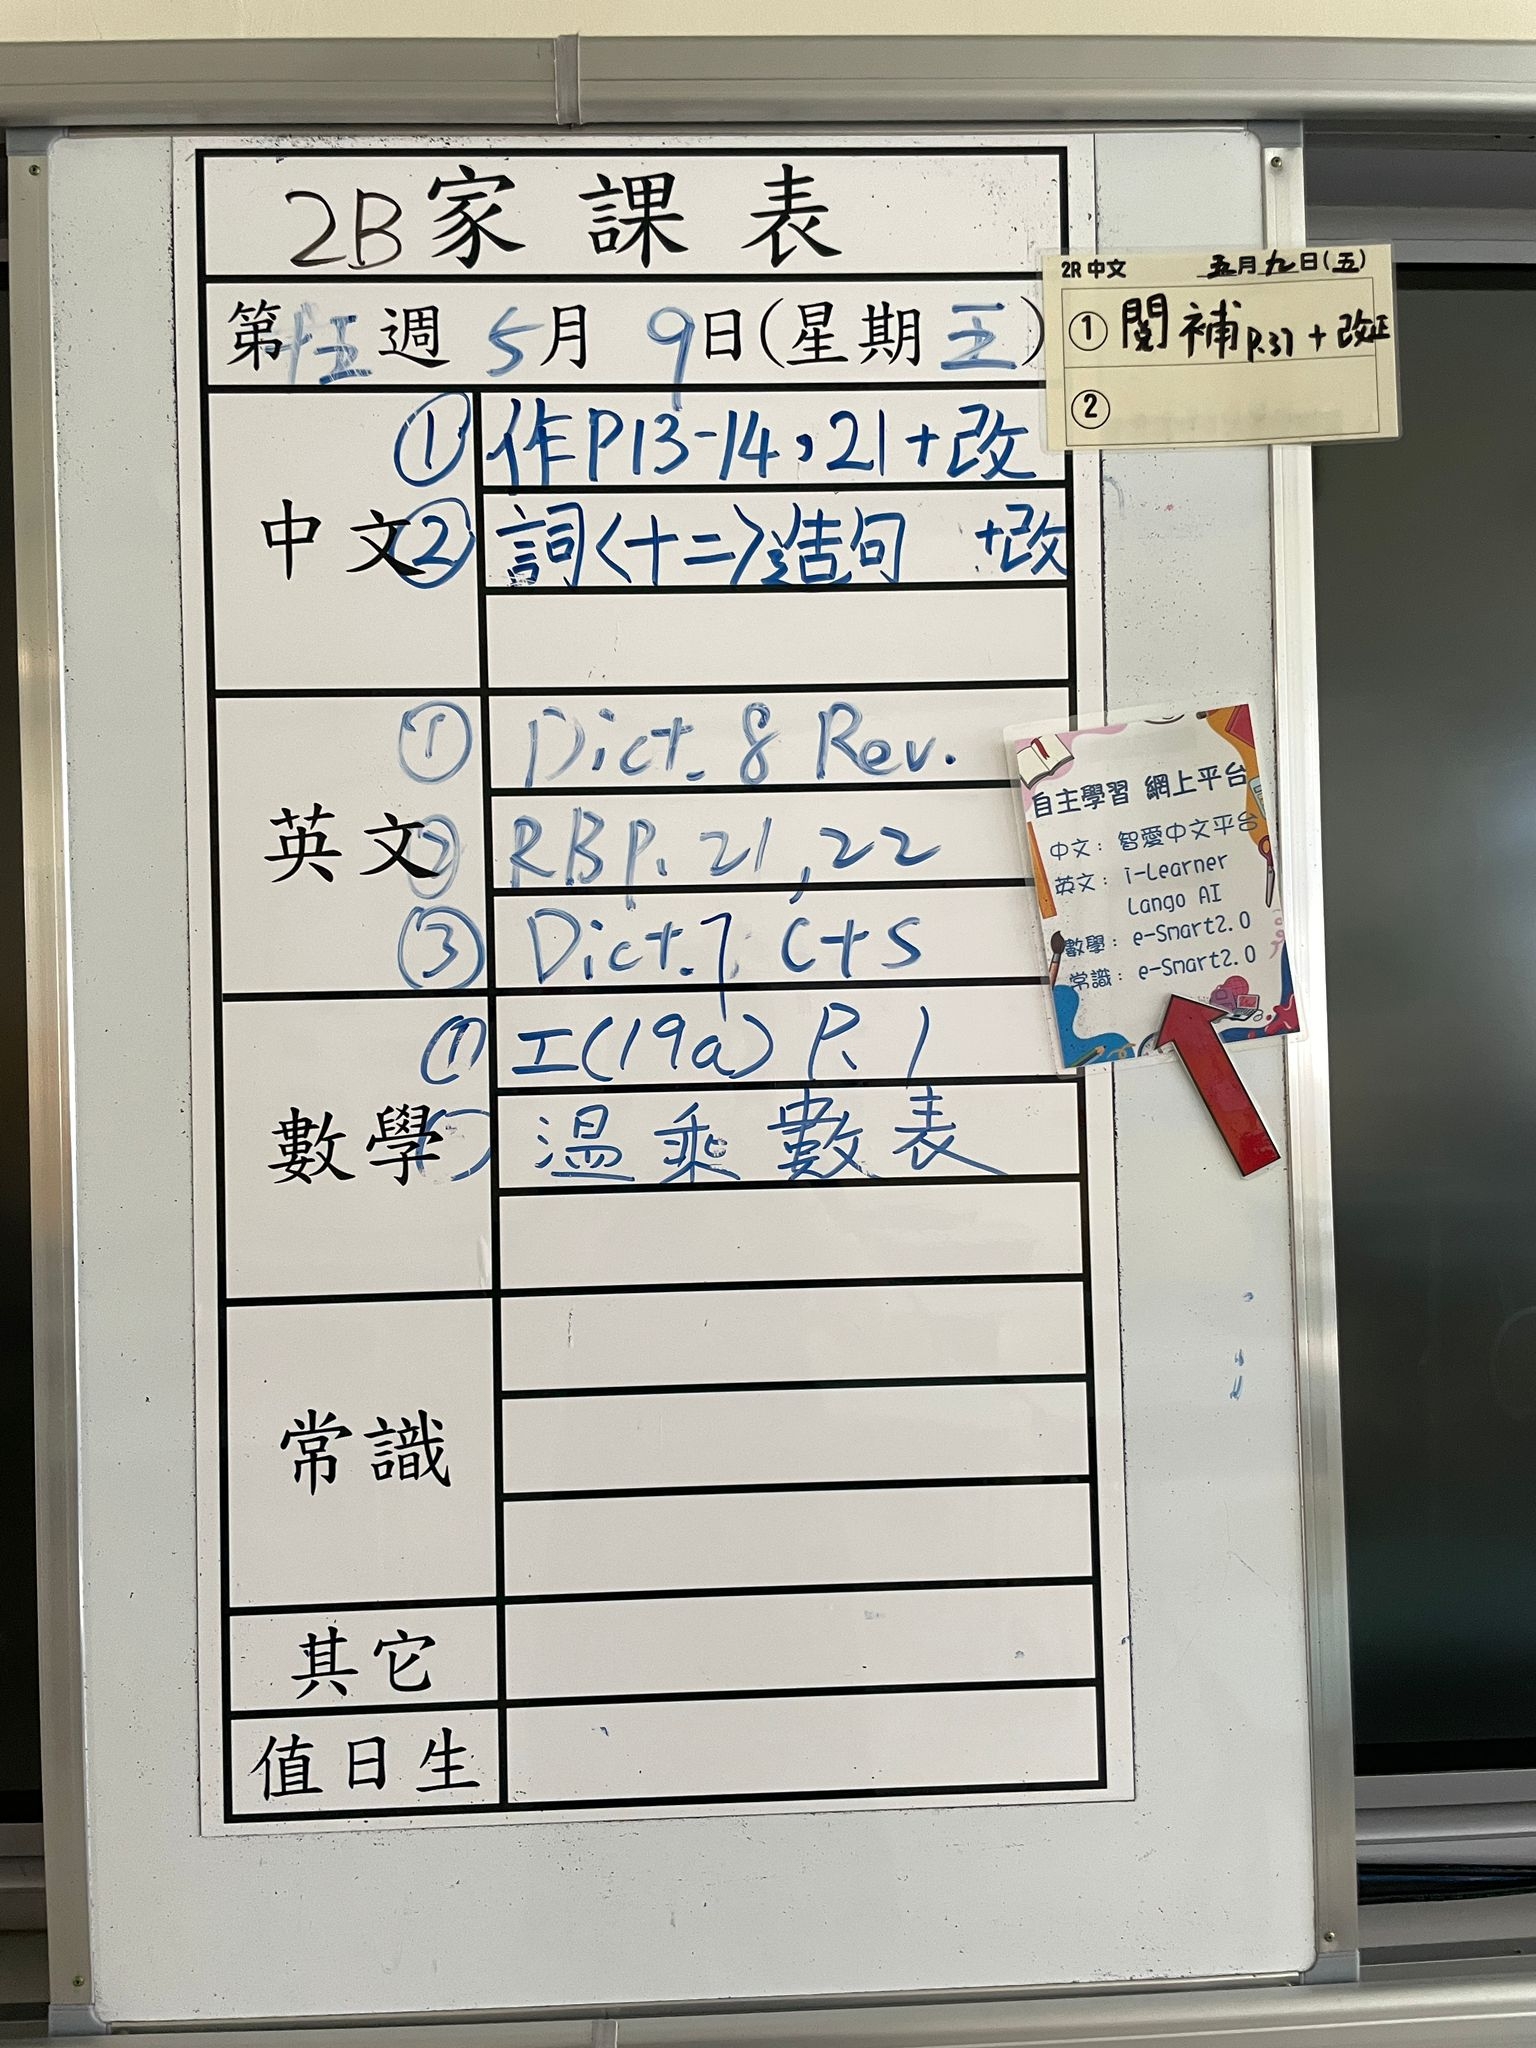 2B家課表
第十五週 5月 9日(星期五)
中文
① 作P13-14,21+改
② 詞<十二>造句 +改
英文
① Dict. 8 Rev.
② RB P. 21, 22
③ Dict. 7 C+S
數學
① 工(19a) P. 1
溫乘數表
常識
其它
值日生
2R 中文 五月九日(五)
① 閱補 P.37 + 改正
②
自主學習 網上平台
中文: 智愛中文平台
英文: i-Learner
Lango AI
數學: e-Smart2.0
常識: e-Smart2.0